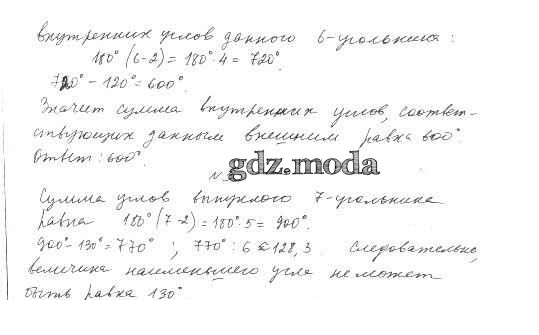 внутренних углов данного 6-угольника:
180° (6-2) = 180°·4 = 720°.
720° - 120° = 600°.
Значит сумма внутренних углов, соответ-
ствующих данным внешним равна 600°
Ответ: 600°.
N
gdz.moda
Сумма углов выпуклого 7-угольника
равна 180° (7-2) = 180°·5 = 900°.
900° - 130° = 770° ; 770° : 6 ≈ 128,3 Следовательно,
величина наименьшего угла не может
быть равна 130°